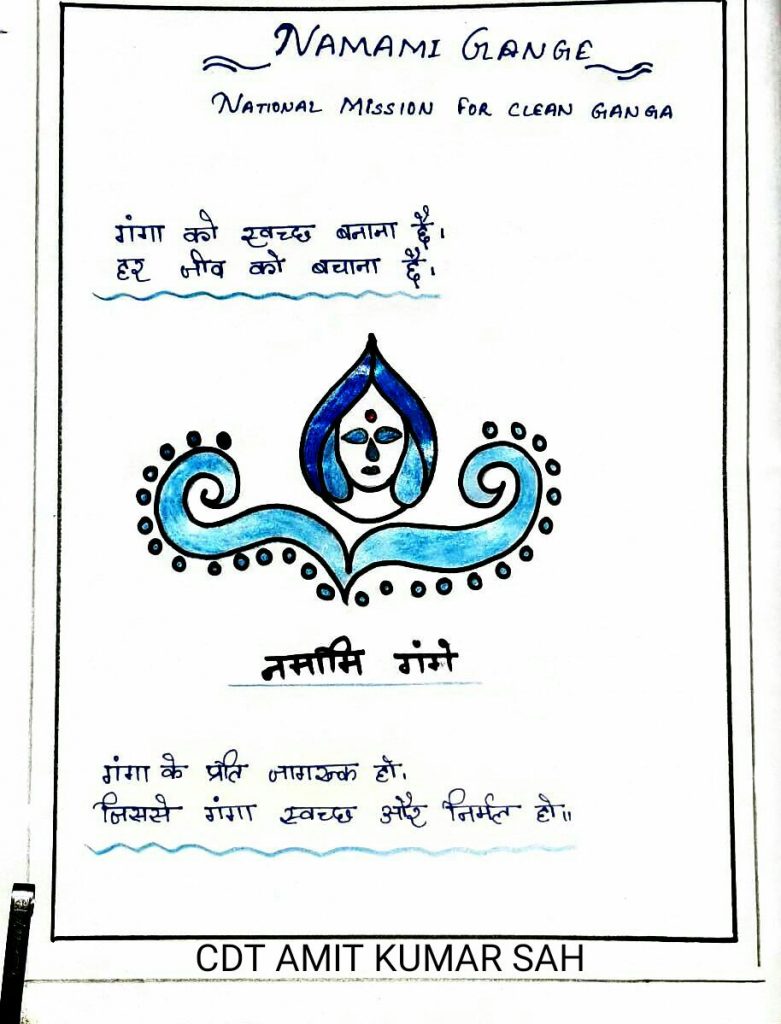 NAMAMI GANGE
NATIONAL MISSION FOR CLEAN GANGA
गंगा को स्वच्छ बनाना है।
हर जीव को बचाना है।
नमामि गंगे
गंगा के प्रति जागरुक हो।
जिससे गंगा स्वच्छ और निर्मल हो॥
CDT AMIT KUMAR SAH